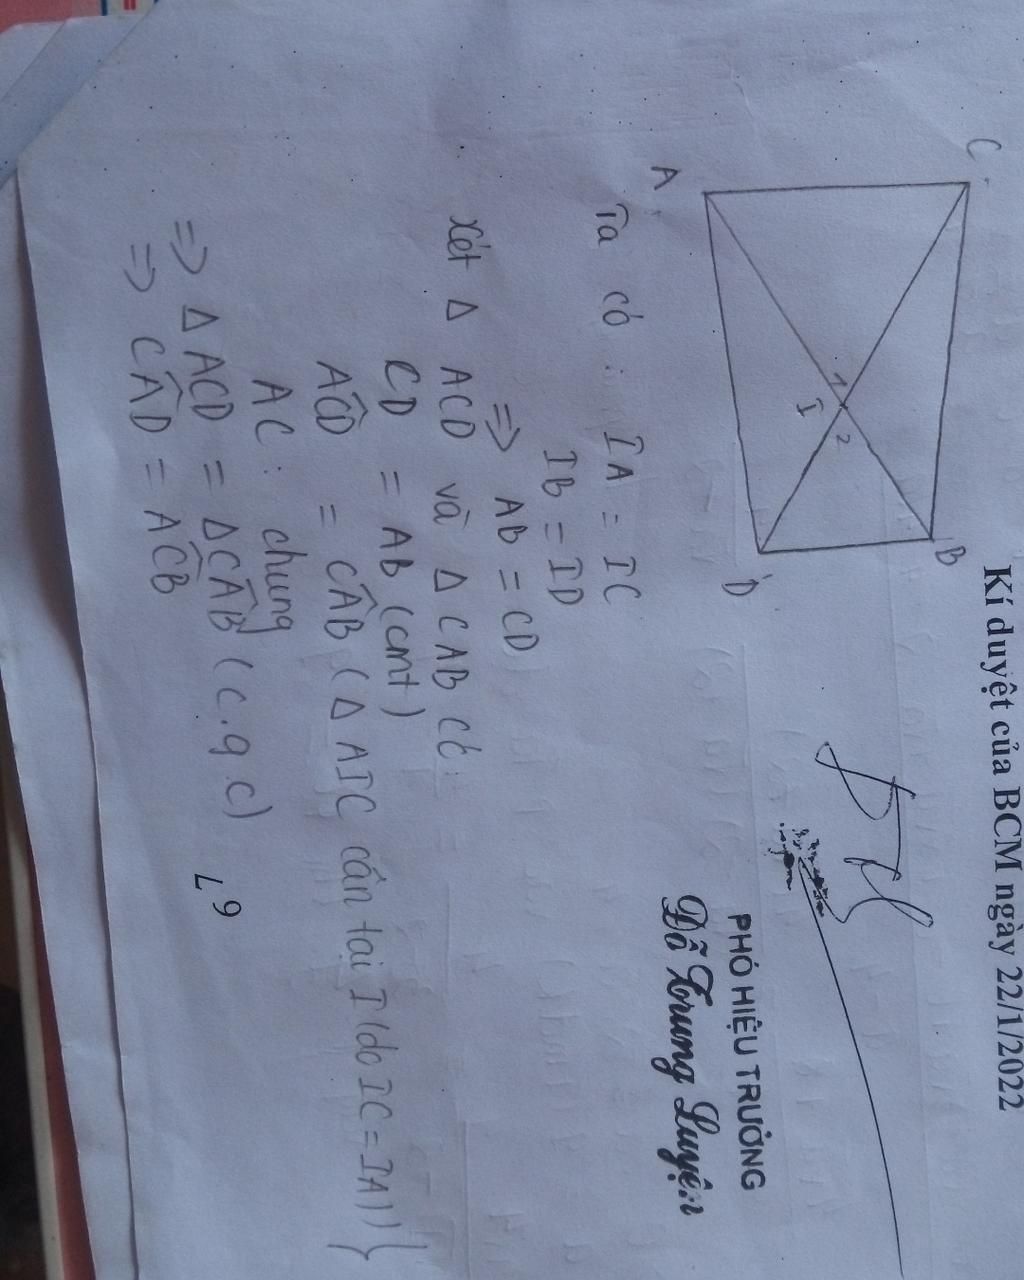 Kí duyệt của BCM ngày 22/1/2022
PHÓ HIỆU TRƯỞNG
Đỗ Trung Luyện
C
B
A
D
1
I
2
Ta có : IA = IC
IB = ID
=> AB = CD
Xét Δ ACD và Δ CAB có:
CD = AB (cmt)
AĈD = CÂB (Δ AIC cân tại I (do IC = IA))
AC : chung
=> Δ ACD = ΔCÂB (c.g.c)
=> CÂD = AĈB
67